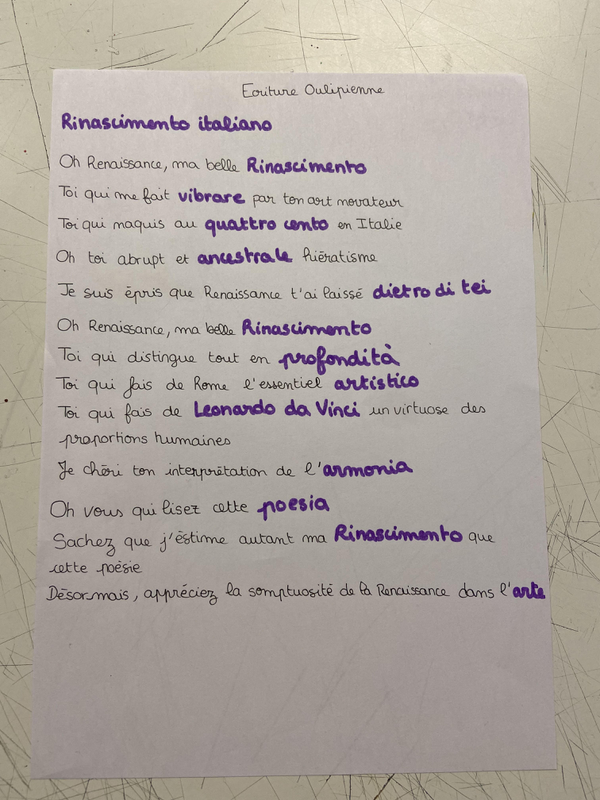 Ecriture Oulipienne
Rinascimento italiano
Oh Renaissance, ma belle Rinascimento
Toi qui me fait vibrare par ton art novateur
Toi qui naquis au quattro cento en Italie
Oh toi abrupt et ancestrale hiératisme
Je suis épris que Renaissance t'ai laissé dietro di tei
Oh Renaissance, ma belle Rinascimento
Toi qui distingue tout en profondità
Toi qui fais de Rome l'essentiel artistico
Toi qui fais de Leonardo da Vinci un virtuose des
proportions humaines
Je chéri ton interprétation de l'armonia
Oh vous qui lisez cette poesia
Sachez que j'éstime autant ma Rinascimento que
cette poésie
Désormais, appréciez la somptuosité de la Renaissance dans l'arte